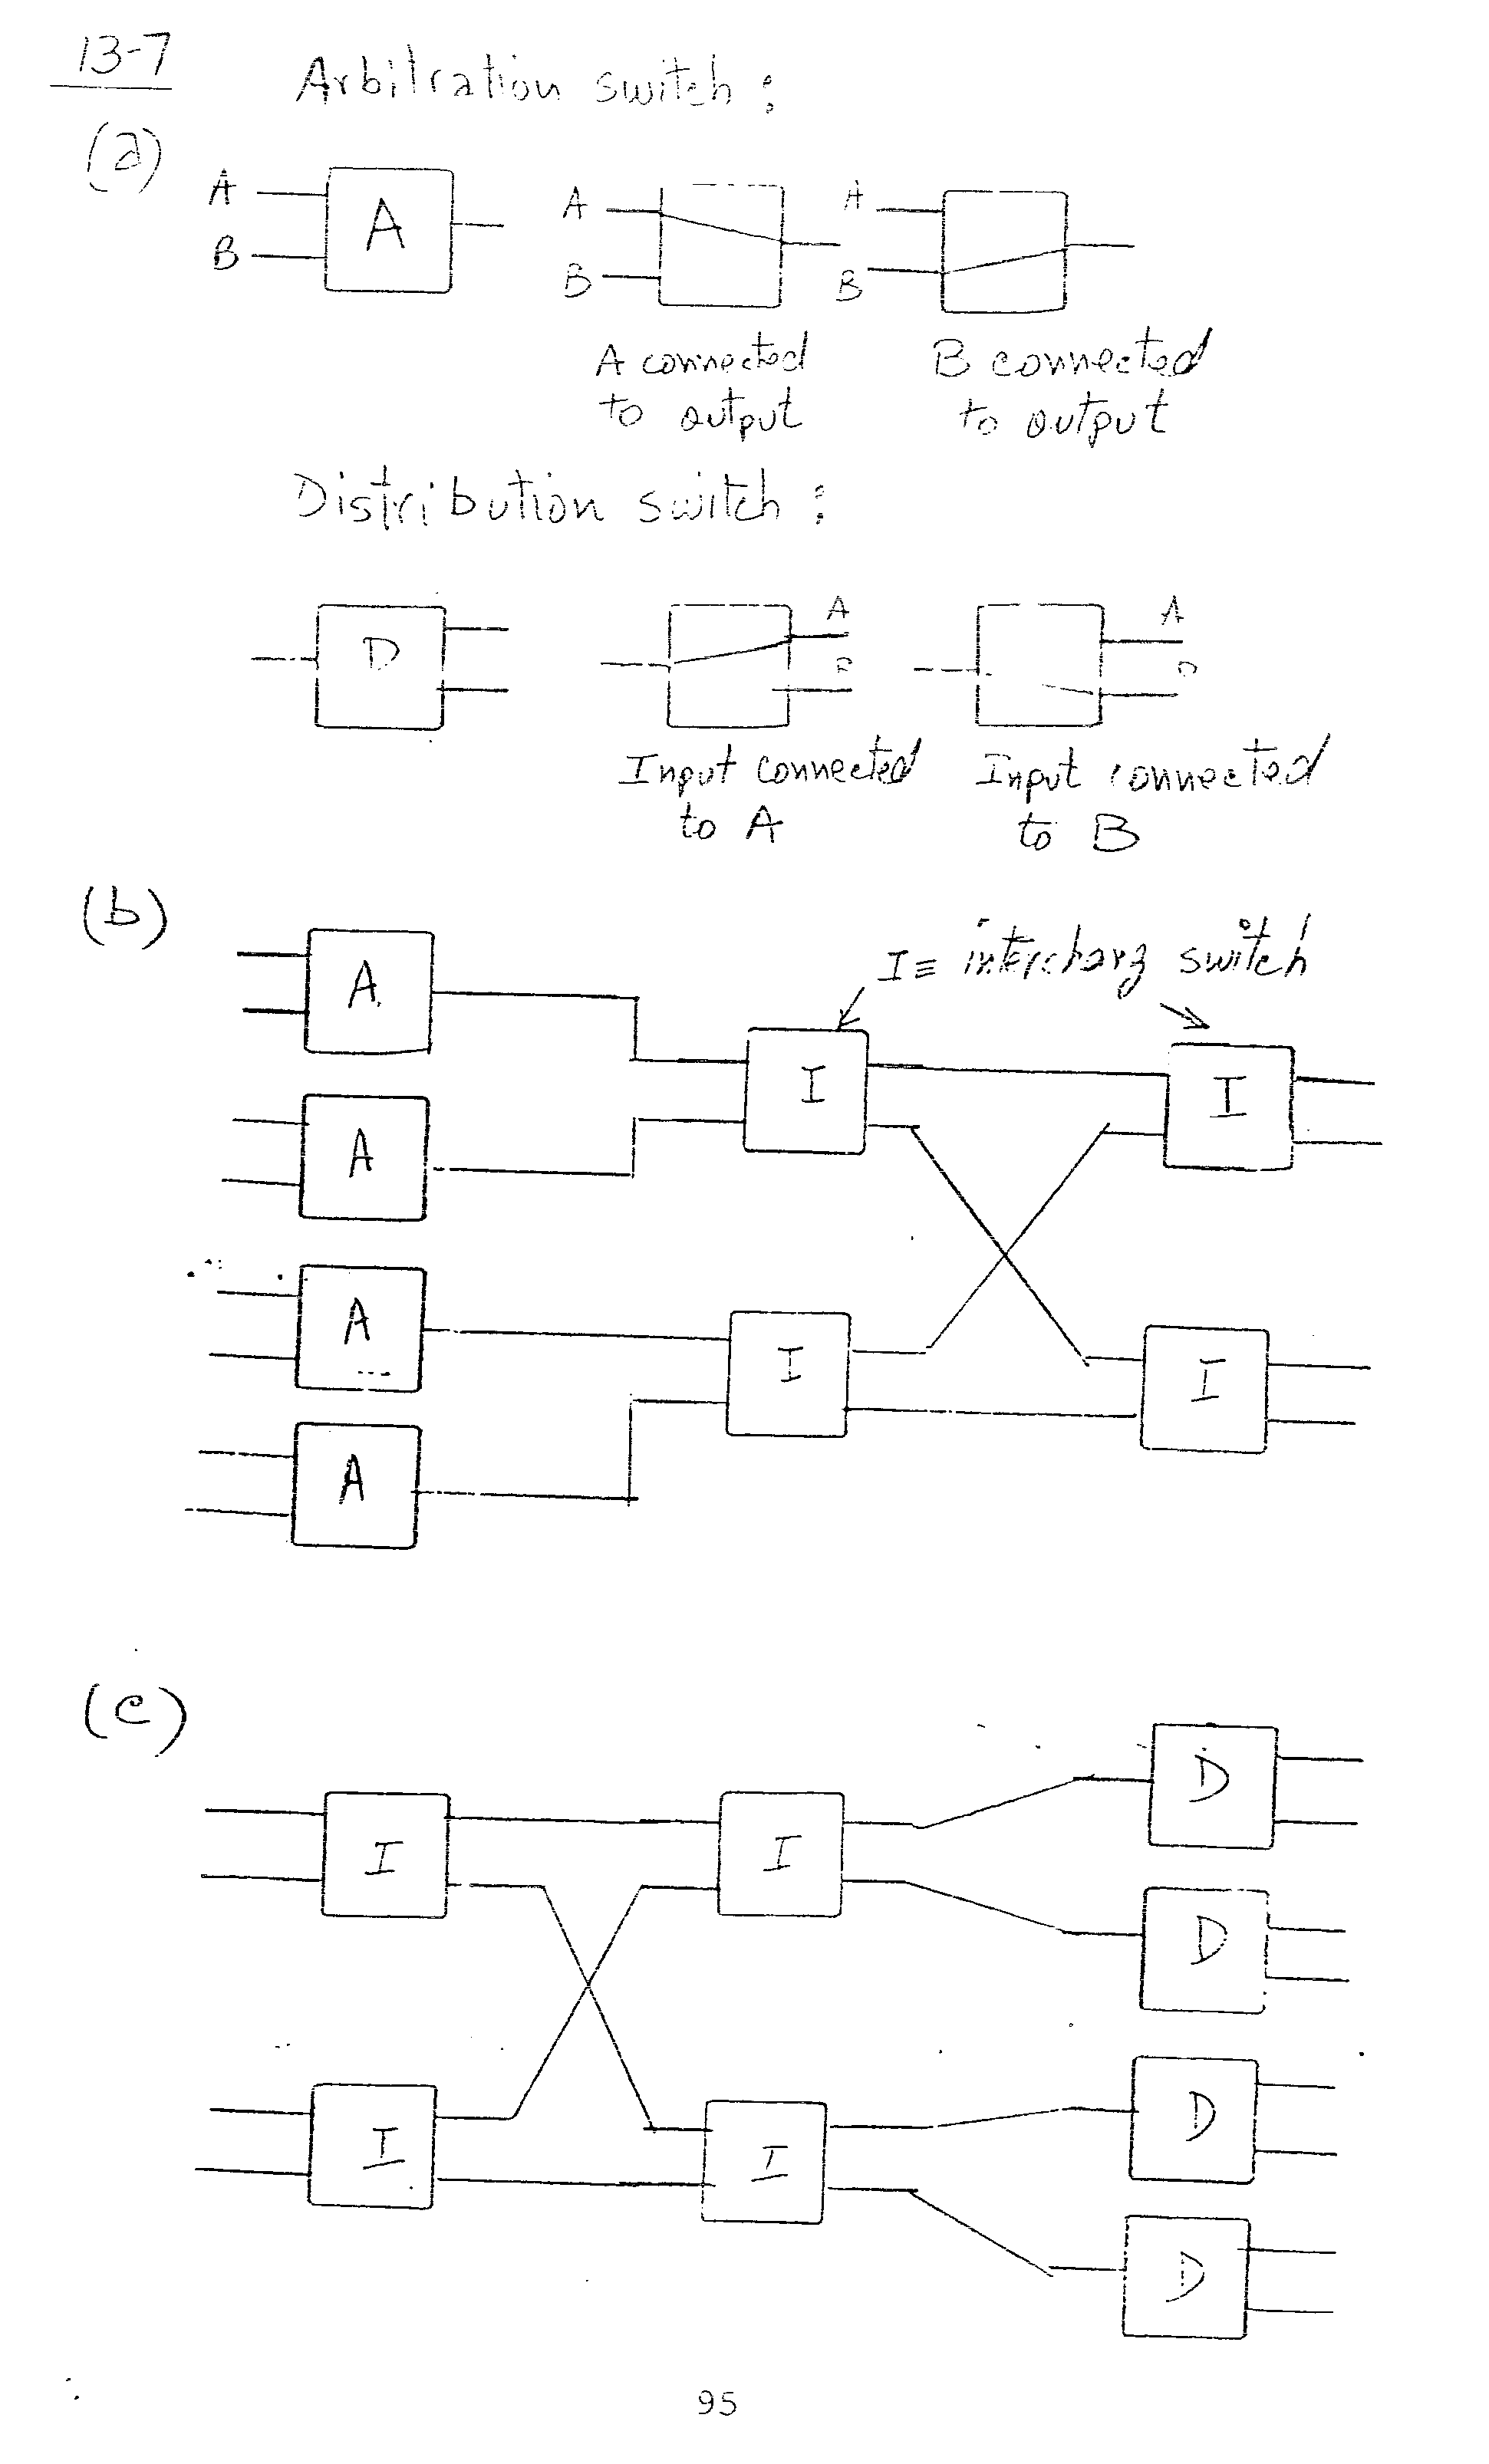 13-7
Arbitration switch :
(a)
A
B
A
A
B
A
B
A connected
to output
B connected
to output
Distribution switch :
D
A
B
A
Input connected
to A
Input connected
to B
(b)
I ≡ interchang switch
A
A
A
A
I
I
I
I
(c)
I
I
I
I
D
D
D
D
95